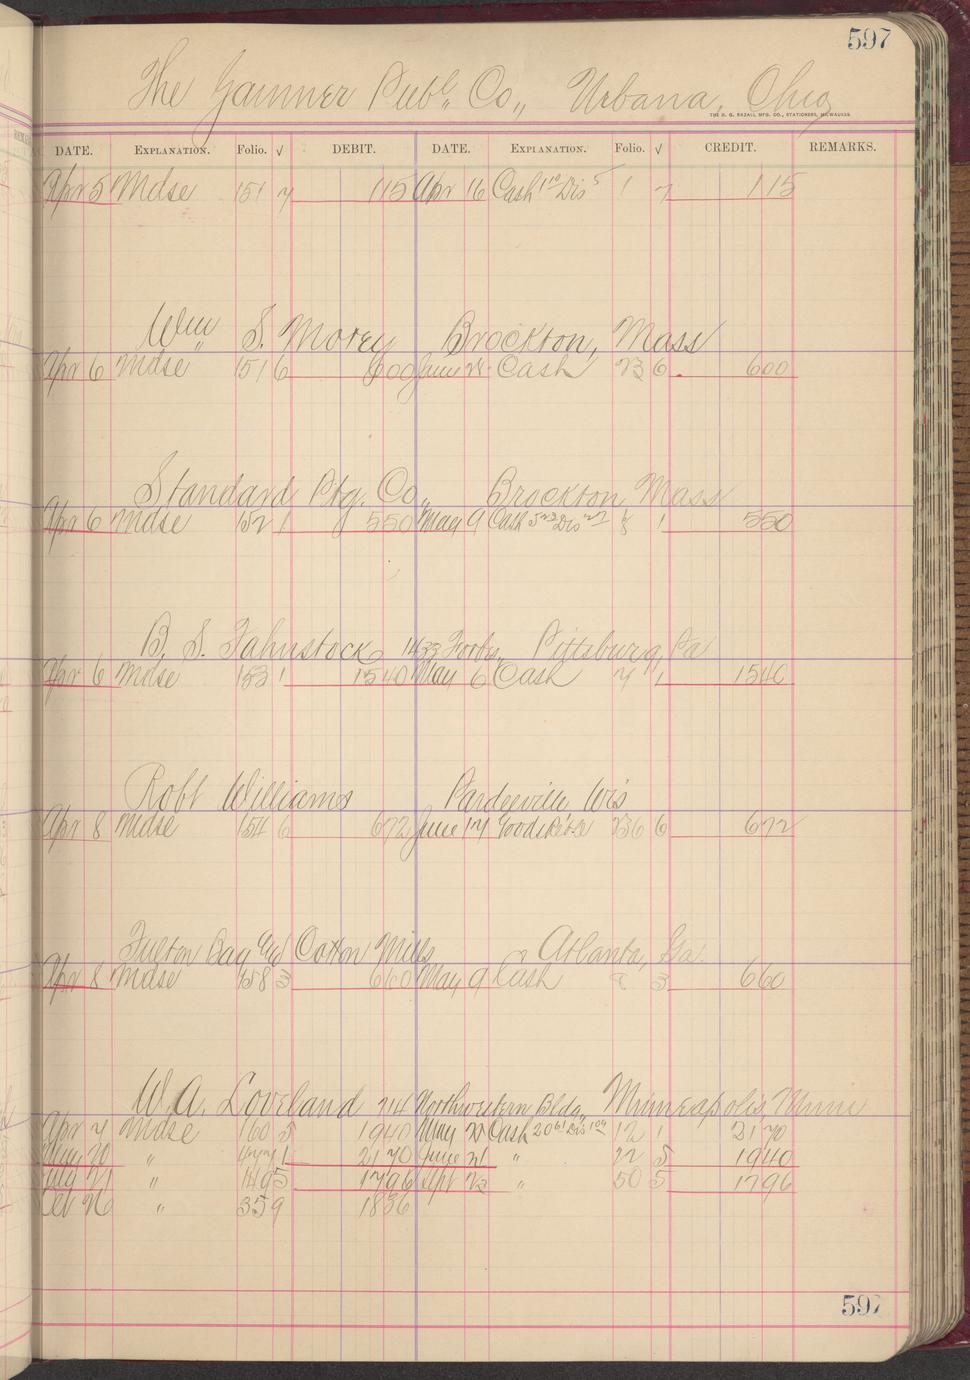 597
The Gaumer Publ. Co., Urbana, Ohio
THE H. G. RAZALL MFG. CO., STATIONERS, MILWAUKEE
DATE. EXPLANATION. Folio. √ DEBIT. DATE. EXPLANATION. Folio. √ CREDIT. REMARKS.
Apr 5 Mdse 151 7 115 Apr 16 Cash 1 10 Dis 5 1 7 115
Wm S. Morey Brockton, Mass
Apr 6 Mdse 151 6 600 June Cash 23 6 600
Standard Ptg. Co. Brockton Mass
Apr 6 Mdse 152 1 550 May 9 Cash 5 23 Dis 27 1 550
B. S. Fahnstock 1433 Forbes Pittsburg, Pa
Apr 6 Mdse 153 1 1540 May 6 Cash 7 1 1540
Robt Williams Pardeeville Wis
Apr 8 Mdse 154 6 672 June 17 Goods Retd 236 6 672
Fulton Bag and Cotton Mills Atlanta, Ga.
Apr 8 Mdse 158 3 660 May 9 Cash 8 3 660
W. A. Loveland 714 Northwestern Bldg., Minneapolis, Minn
Apr 7 Mdse 160 5 1940 May 20 Cash 20 61 Dis 1 09 12 1 2170
May 20 " 1 2170 June 21 " 22 5 1940
" 149 5 1796 Sept 23 " 50 5 1796
Oct 26 " 359 1836
597